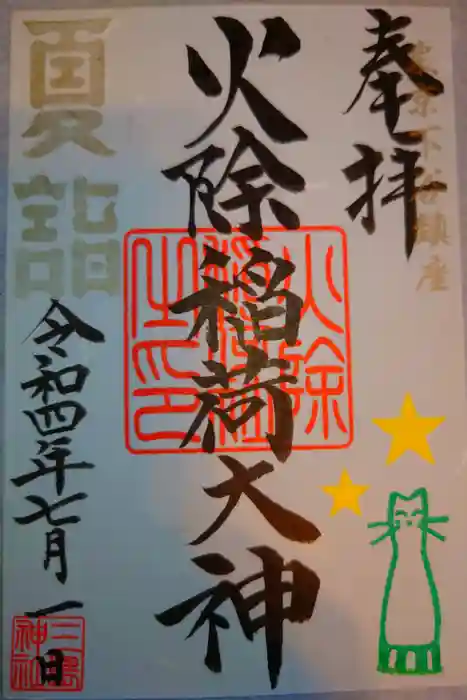 奉拝
東京下谷鎮座
火除稲荷大神
火除稲荷社之印
夏詣
令和四年七月一日
三島神社